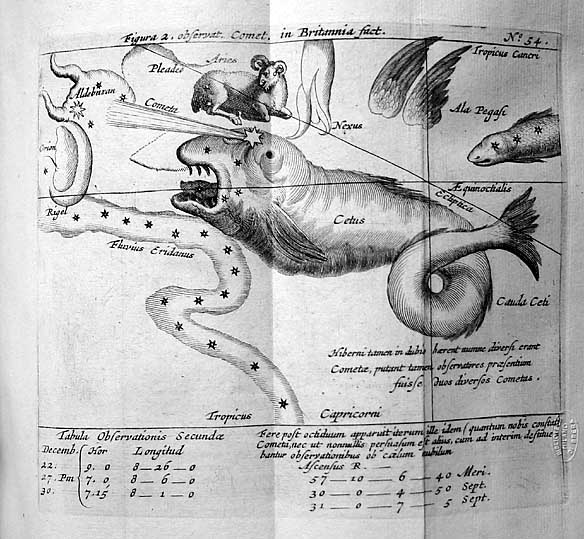 Figura 2. observat. Comet. in Britannia fact.
No. 54.
Tropicus Cancri
Pleades
Aries
Aldebaran
Cometa
Nexus
Ala Pegasi
Orion
Æquinoctialis
Ecliptica
Rigel
Cetus
Fluvius Eridanus
Cauda Ceti
Hiberni tamen in dubio hærent numne diversi erant
Cometæ, putant tamen observatores præsentium
fuisse duos diversos Cometas.
Tropicus Capricorni
Tabula Observationis Secundæ
Decemb. Hor Longitud
22. 9. 0 8 — 26 — 0
27. Pm 7. 0 8 — 6 — 0
30. 7. 15 8 — 1 — 0
Fere post octiduum apparuit iterum ille idem (quantum nobis constat)
Cometa, nec ut nonnullis persuasum est alius, cum ad interim destitue
bantur observationibus ob cælum nubilum
Ascensus R.
57 — 10 — 6 — 40 Meri.
30 — 0 — 4 — 50 Sept.
31 — 0 — 7 — 5 Sept.